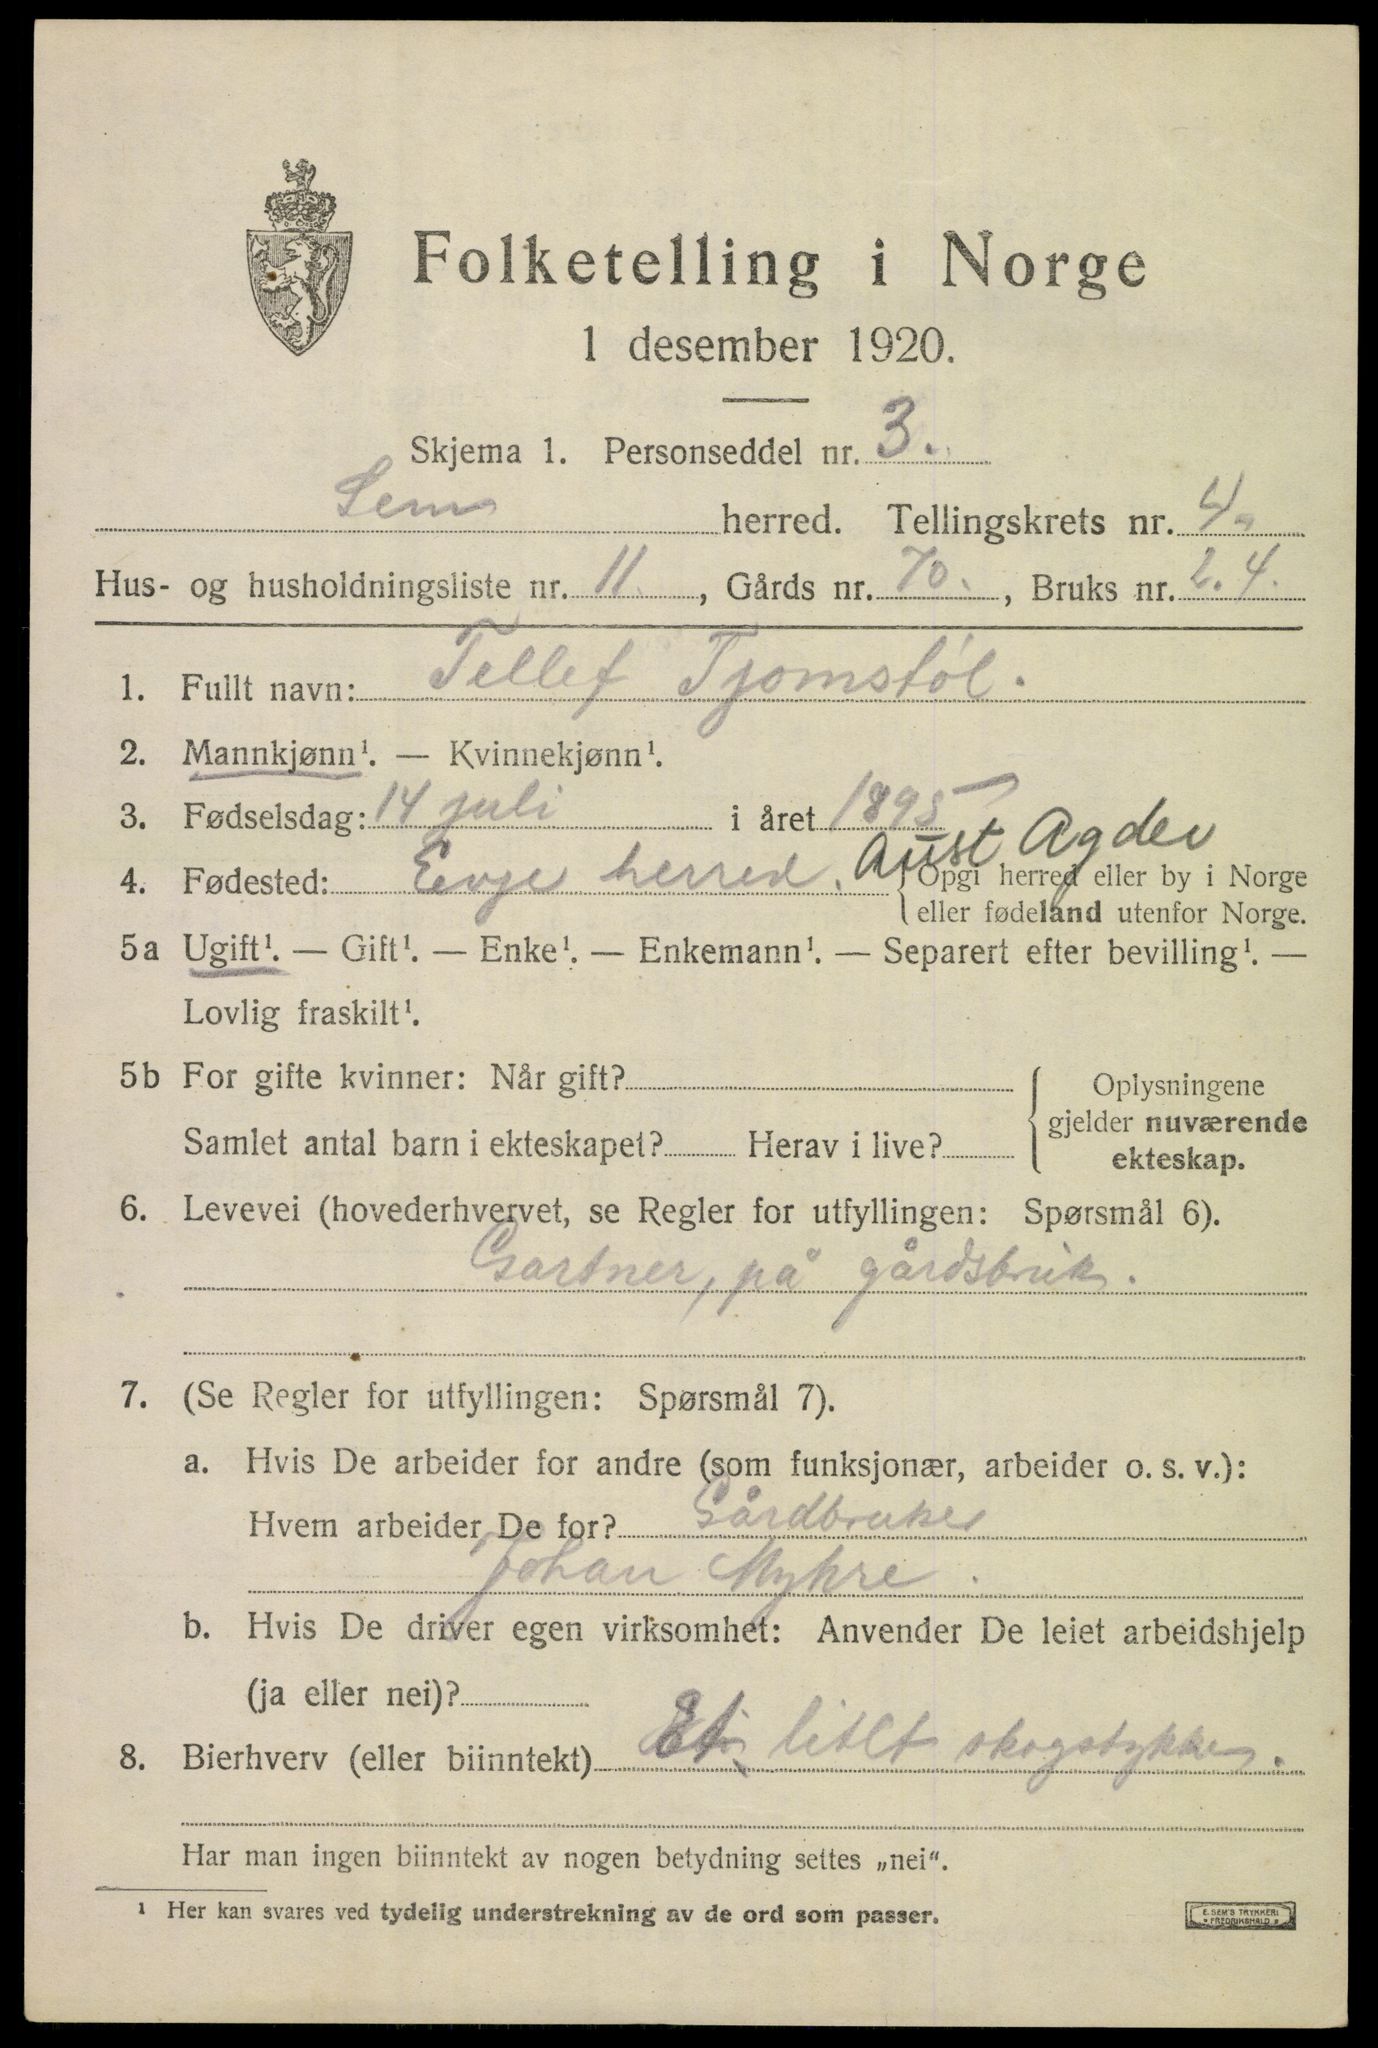 Folketelling i Norge
1 desember 1920.
Skjema 1. Personseddel nr. 3.
Sem herred. Tellingskrets nr. 4.
Hus- og husholdningsliste nr. 11. , Gårds nr. 70. , Bruks nr. 2.4.
1. Fullt navn: Tellef Tjomstøl.
2. Mannkjønn¹. — Kvinnekjønn¹.
3. Fødselsdag: 14 juli i året 1895
Aust Agder
4. Fødested: Eivje herred. Opgi herred eller by i Norge
eller fødeland utenfor Norge.
5a Ugift¹. — Gift¹. — Enke¹. — Enkemann¹. — Separert efter bevilling¹. —
Lovlig fraskilt¹.
5b For gifte kvinner: Når gift? Oplysningene
gjelder nuværende
Samlet antal barn i ekteskapet? Herav i live? ekteskap.
6. Levevei (hovederhvervet, se Regler for utfyllingen: Spørsmål 6).
Gartner, på gårdsbruk.
7. (Se Regler for utfyllingen: Spørsmål 7).
a. Hvis De arbeider for andre (som funksjonær, arbeider o. s. v.):
Hvem arbeider De for? Gårdbruker
Johan Myhre.
b. Hvis De driver egen virksomhet: Anvender De leiet arbeidshjelp
(ja eller nei)?
8. Bierhverv (eller biinntekt) Et litlt skogstykke.
Har man ingen biinntekt av nogen betydning settes „nei“.
¹ Her kan svares ved tydelig understrekning av de ord som passer.
E. SEM'S TRYKKERI
FREDRIKSHALD